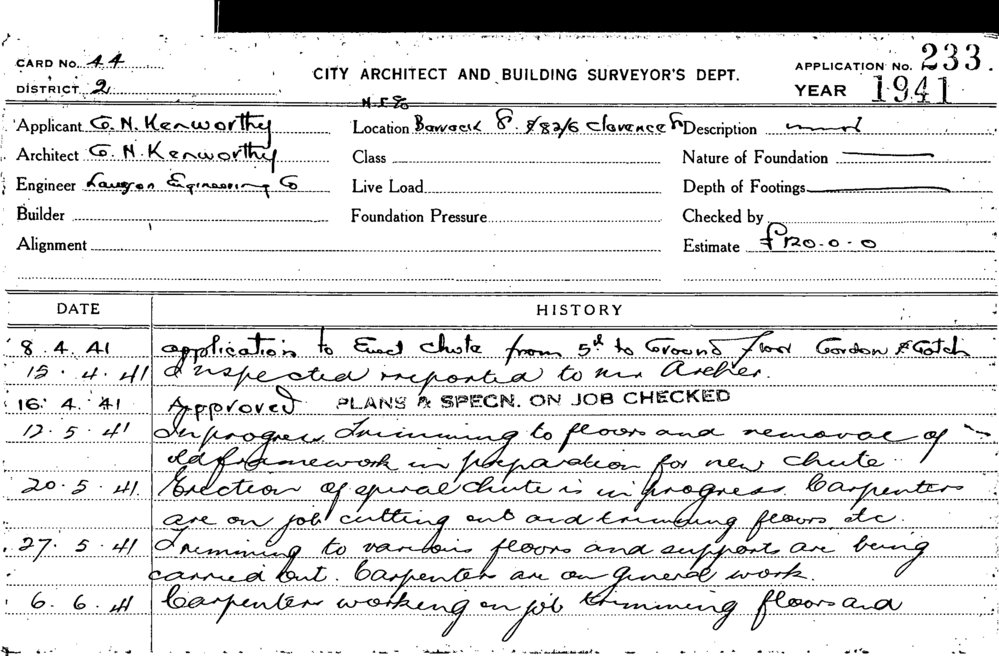 CARD No. 44
DISTRICT 2
CITY ARCHITECT AND BUILDING SURVEYOR'S DEPT.
APPLICATION No. 233.
YEAR 1941
Applicant G. N. Kenworthy
Location Barrack S. 82/6 Clarence St
Description
Architect G. N. Kenworthy
Class
Nature of Foundation
Engineer Lawson Engineering Co
Live Load
Depth of Footings
Builder
Foundation Pressure
Checked by
Alignment
Estimate £120-0-0
DATE HISTORY
8. 4. 41 application to Erect chute from 5th to Ground floor Gordon & Gotch
15. 4. 41 Inspected reported to Mr Archer.
16. 4. 41 Approved PLANS & SPECN. ON JOB CHECKED
12. 5. 41 In progress. Trimming to floors and removal of
old framework in preparation for new chute
20. 5. 41 Erection of spiral chute is in progress. Carpenters
are on job cutting out and trimming floors etc.
27. 5. 41 Trimming to various floors and supports are being
carried out. Carpenters are on general work.
6. 6. 41 Carpenters working on job trimming floors and